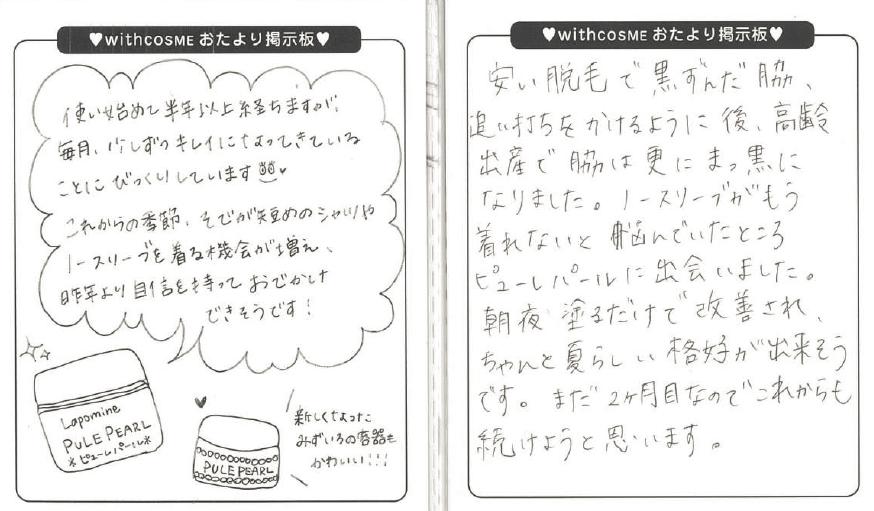 ♥withcosME おたより掲示板♥
使い始めて半年以上経ちますが、
毎月、少しずつキレイになってきている
ことにびっくりしています♥
これからの季節、そでが短めのシャツや
ノースリーブを着る機会が増え、
昨年より自信を持っておでかけ
できそうです!
Lapomine
PULE PEARL
*ピューレパール*
PULE PEARL
新しくなった
みずいろの容器も
かわいい!!!
♥withcosME おたより掲示板♥
安い脱毛で黒ずんだ脇、
追い打ちをかけるように後、高齢
出産で脇は更にまっ黒に
なりました。ノースリーブがもう
着れないと悩んでいたところ
ピューレパールに出会いました。
朝夜塗るだけで改善され、
ちゃんと夏らしい格好が出来そう
です。まだ2ヶ月目なのでこれからも
続けようと思います。